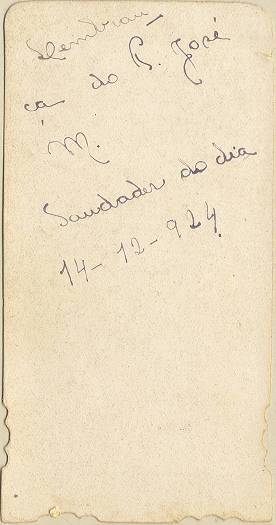 Lembran
ça do P. José
M.
Saudades do dia
14-12-924